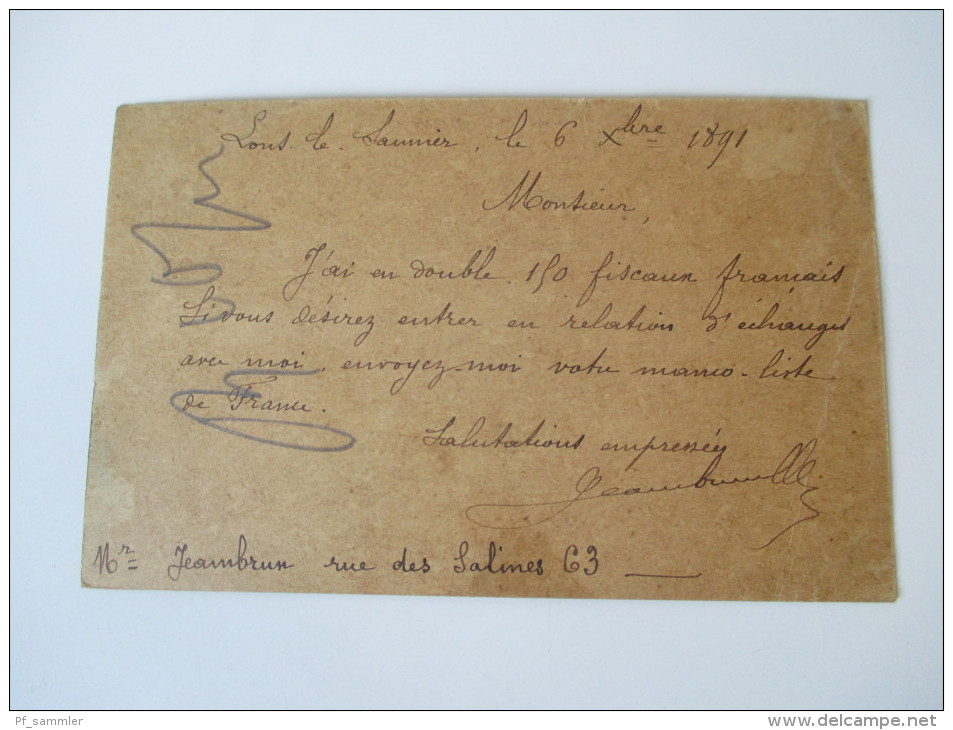 Lons-le-Saunier, le 6 Xbre 1891
Monsieur,
J'ai en double 150 fiscaux français
Si vous désirez entrer en relation d'échanges
avec moi, envoyez-moi votre manco-liste
de France.
Salutations empressées
Jeambrun
Mr Jeambrun rue des Salines 63
Pf_sammler
www.delcampe.net